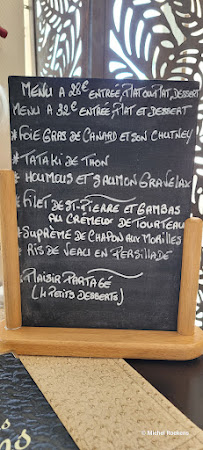 MENU A 28€ ENTRÉE, PLAT OU PLAT, DESSERT
MENU A 32€ ENTRÉE, PLAT ET DESSERT
* FOIE GRAS DE CANARD ET SON CHUTNEY
* TATAKI DE THON
* HOUMOUS ET SAUMON GRAVELAX
* FILET DE ST-PIERRE ET GAMBAS
AU CRÉMEUX DE TOURTEAU
* SUPRÊME DE CHAPON AUX MORILLES
* RIS DE VEAU EN PERSILLADE
PLAISIR PARTAGÉ
(4 PETITS DESSERTS)